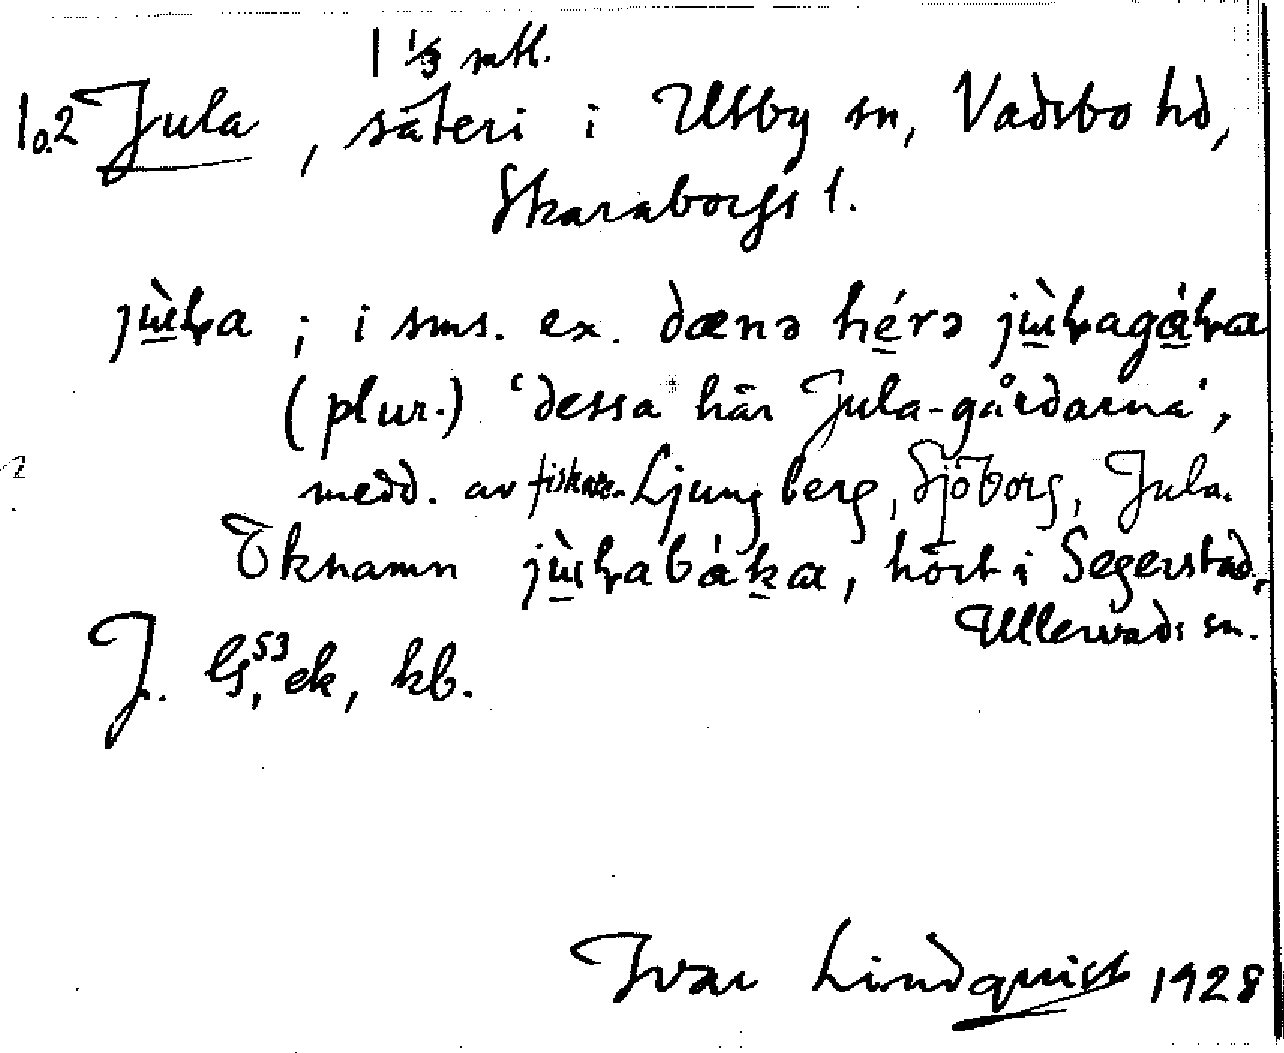 1 1/3 mtl.
1o.2 Jula, säteri i Utby sn, Vadsbo hd,
Skaraborgs l.
jẁɬa ; i sms. ex. dænə hérə jẁɬagáɬa
(plur.) 'dessa här Jula-gårdarna',
medd. av fiskare Ljungberg, Sjöborg, Jula.
Öknamn jẁɬabáka, hört i Segerstad,
Ullervads sn.
J. G,53 ek, kb.
Ivar Lindquist 1928